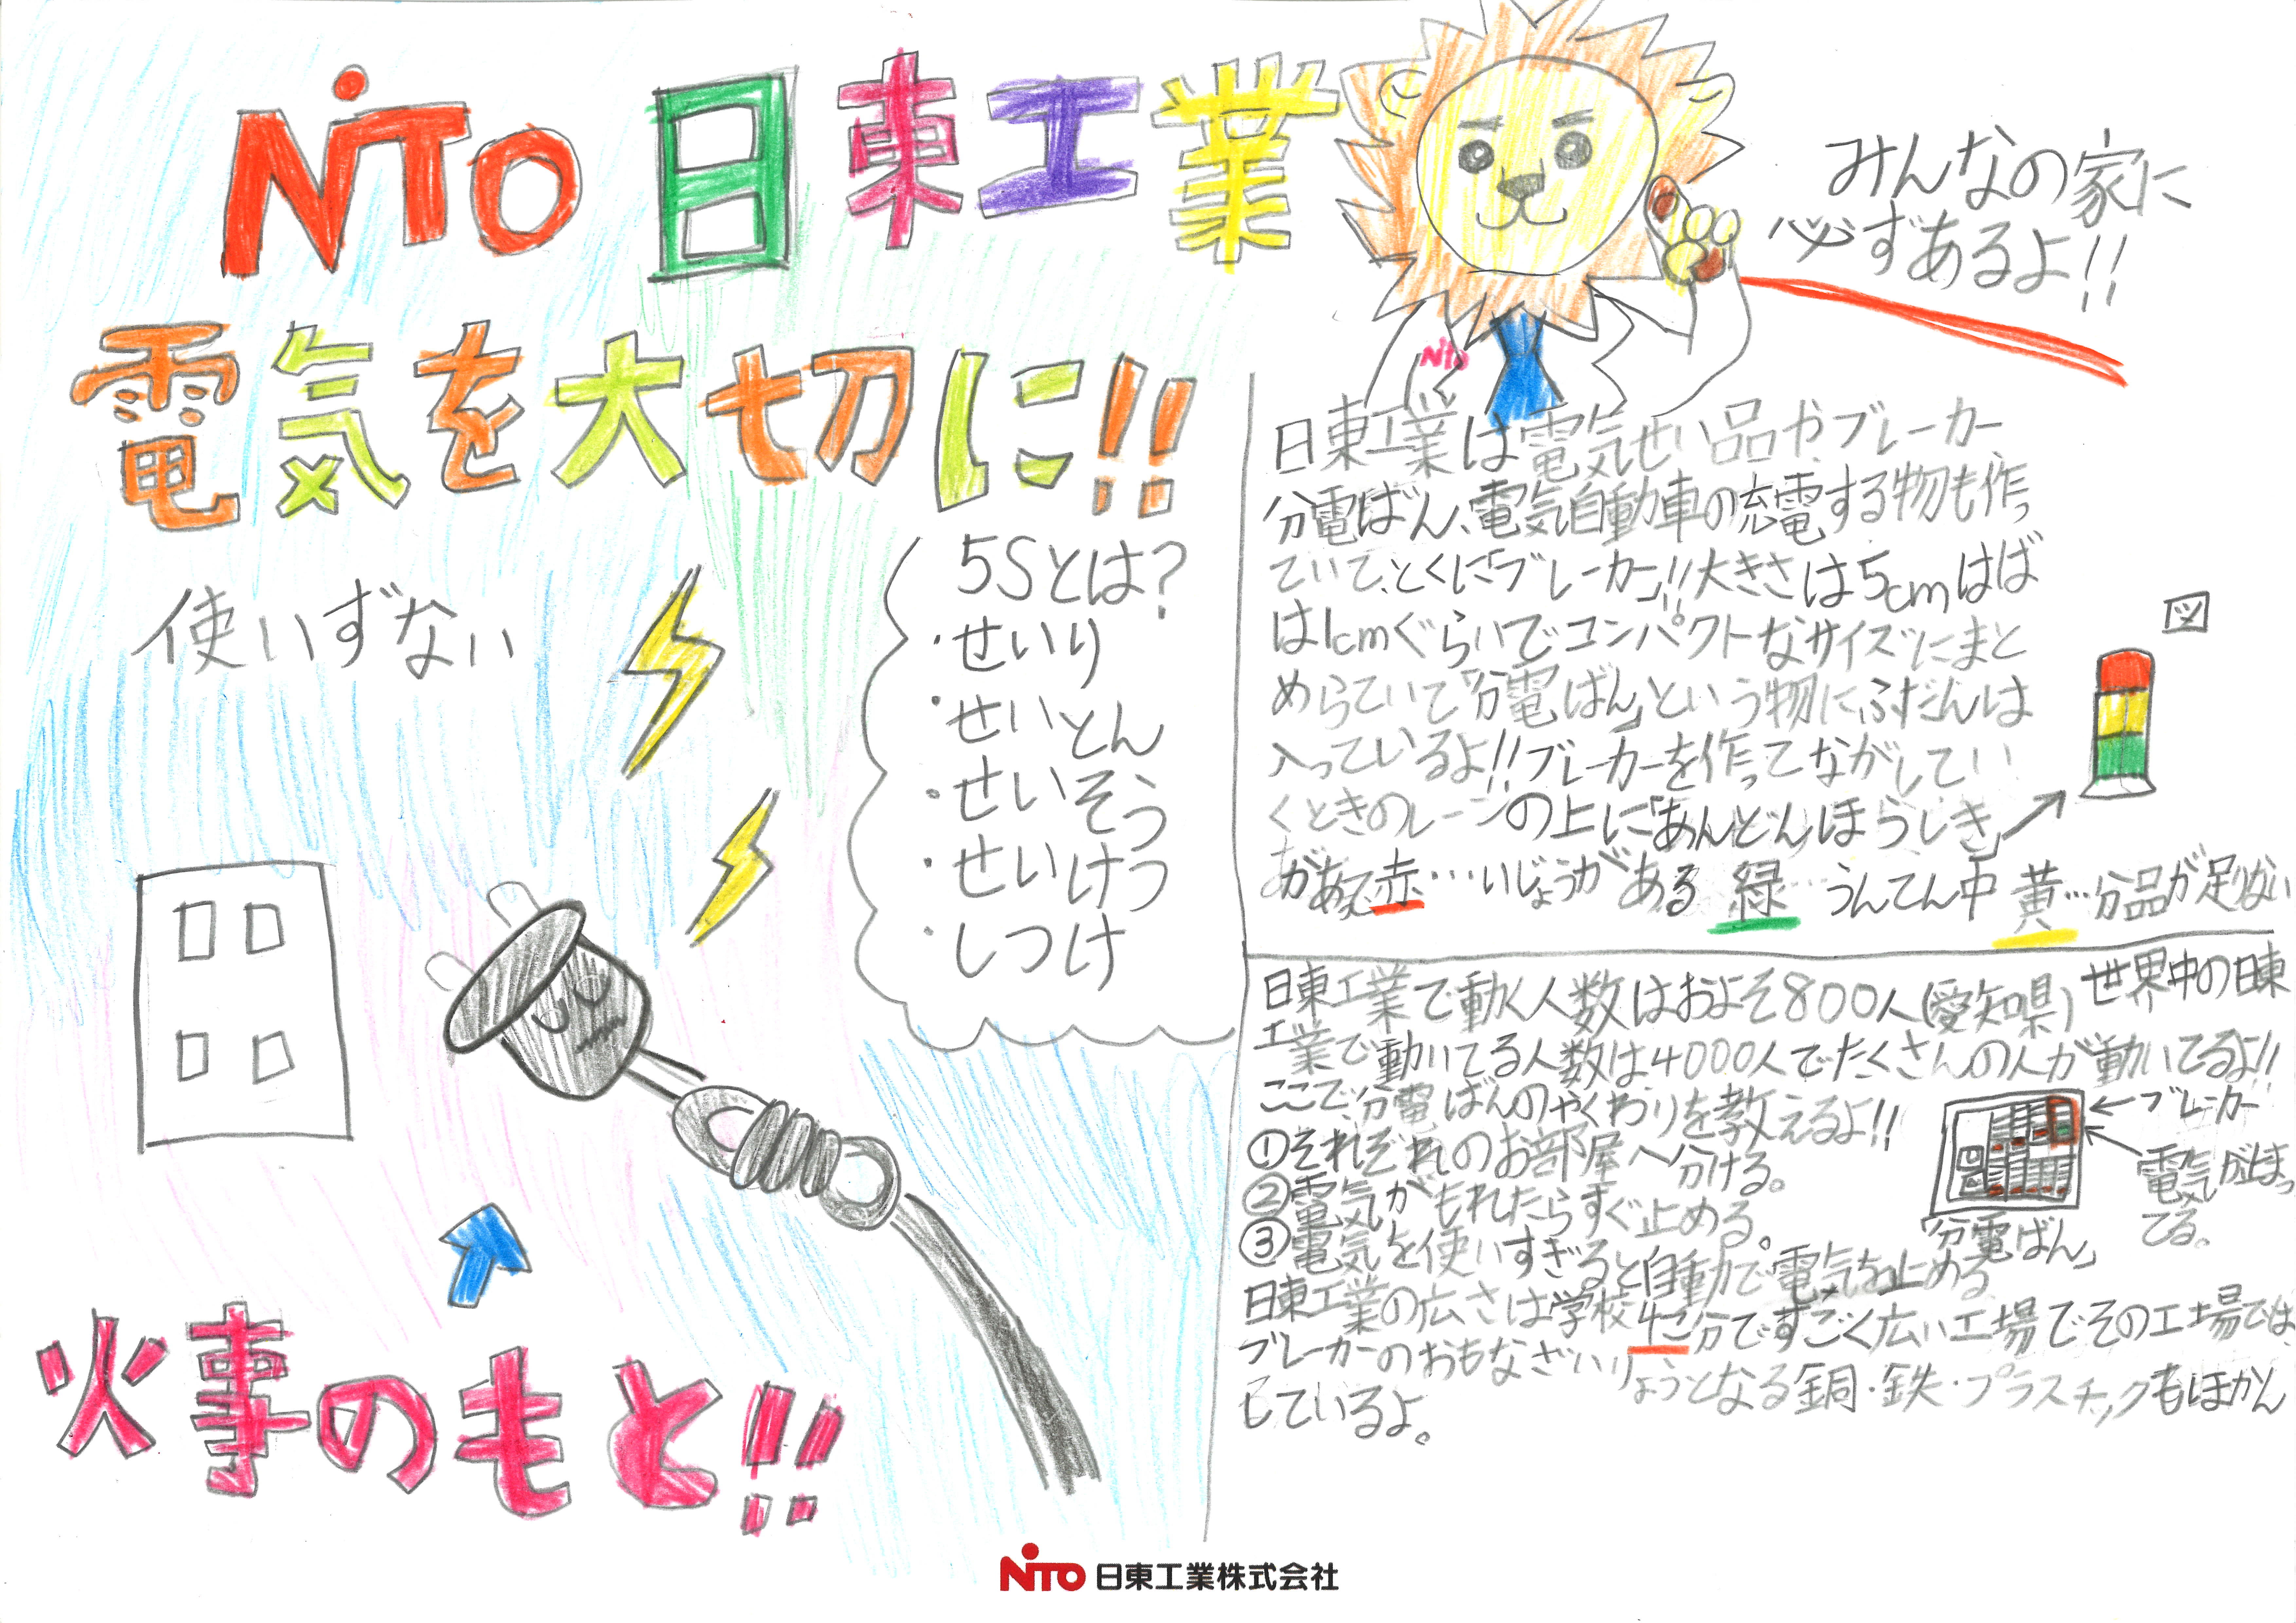 NiTO 日東工業
電気を大切に!!
使いずない
5Sとは?
・せいり
・せいとん
・せいそう
・せいけつ
・しつけ
火事のもと!!
みんなの家に
必ずあるよ!!
NiTO
日東工業は電気せい品や、ブレーカー、
分電ばん、電気自動車の充電する物も作っ
ていて、とくに「ブレーカー」!!大きさは5cmはば
は1cmぐらいでコンパクトなサイズにまと
めらていて「分電ばん」という物にふだんは
入っているよ!!ブレーカーを作ってながしてい
くときのレーンの上に「あんどんほうしき」
があって、赤…いじょうがある 緑…うんてん中 黄…分品が足りない
図
日東工業で動く人数はおよそ800人(愛知県)世界中の日東
工業で動いてる人数は4000人でたくさんの人が動いてるよ!!
ここで、分電ばんのやくわりを教えるよ!!
①それぞれのお部屋へ分ける。
②電気がもれたらすぐ止める。
③電気を使いすぎると自動で電気を止める
ブレーカー
電気がはまっ
てる。
「分電ばん」
日東工業の広さは学校4こ分ですごく広い工場でその工場では、
ブレーカーのおもなざいりょうとなる銅・鉄・プラスチックもほかん
しているよ。
NiTO 日東工業株式会社